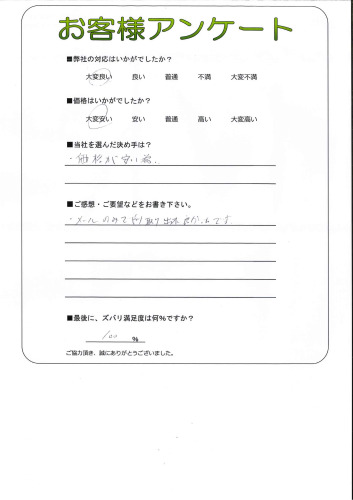 お客様アンケート
■弊社の対応はいかがでしたか？
大変良い 良い 普通 不満 大変不満
■価格はいかがでしたか？
大変安い 安い 普通 高い 大変高い
■当社を選んだ決め手は？
・価格が安い為.
■ご感想・ご要望などをお書き下さい。
・メールのみでやり取り出来良かったです.
■最後に、ズバリ満足度は何%ですか？
100 %
ご協力頂き、誠にありがとうございました。